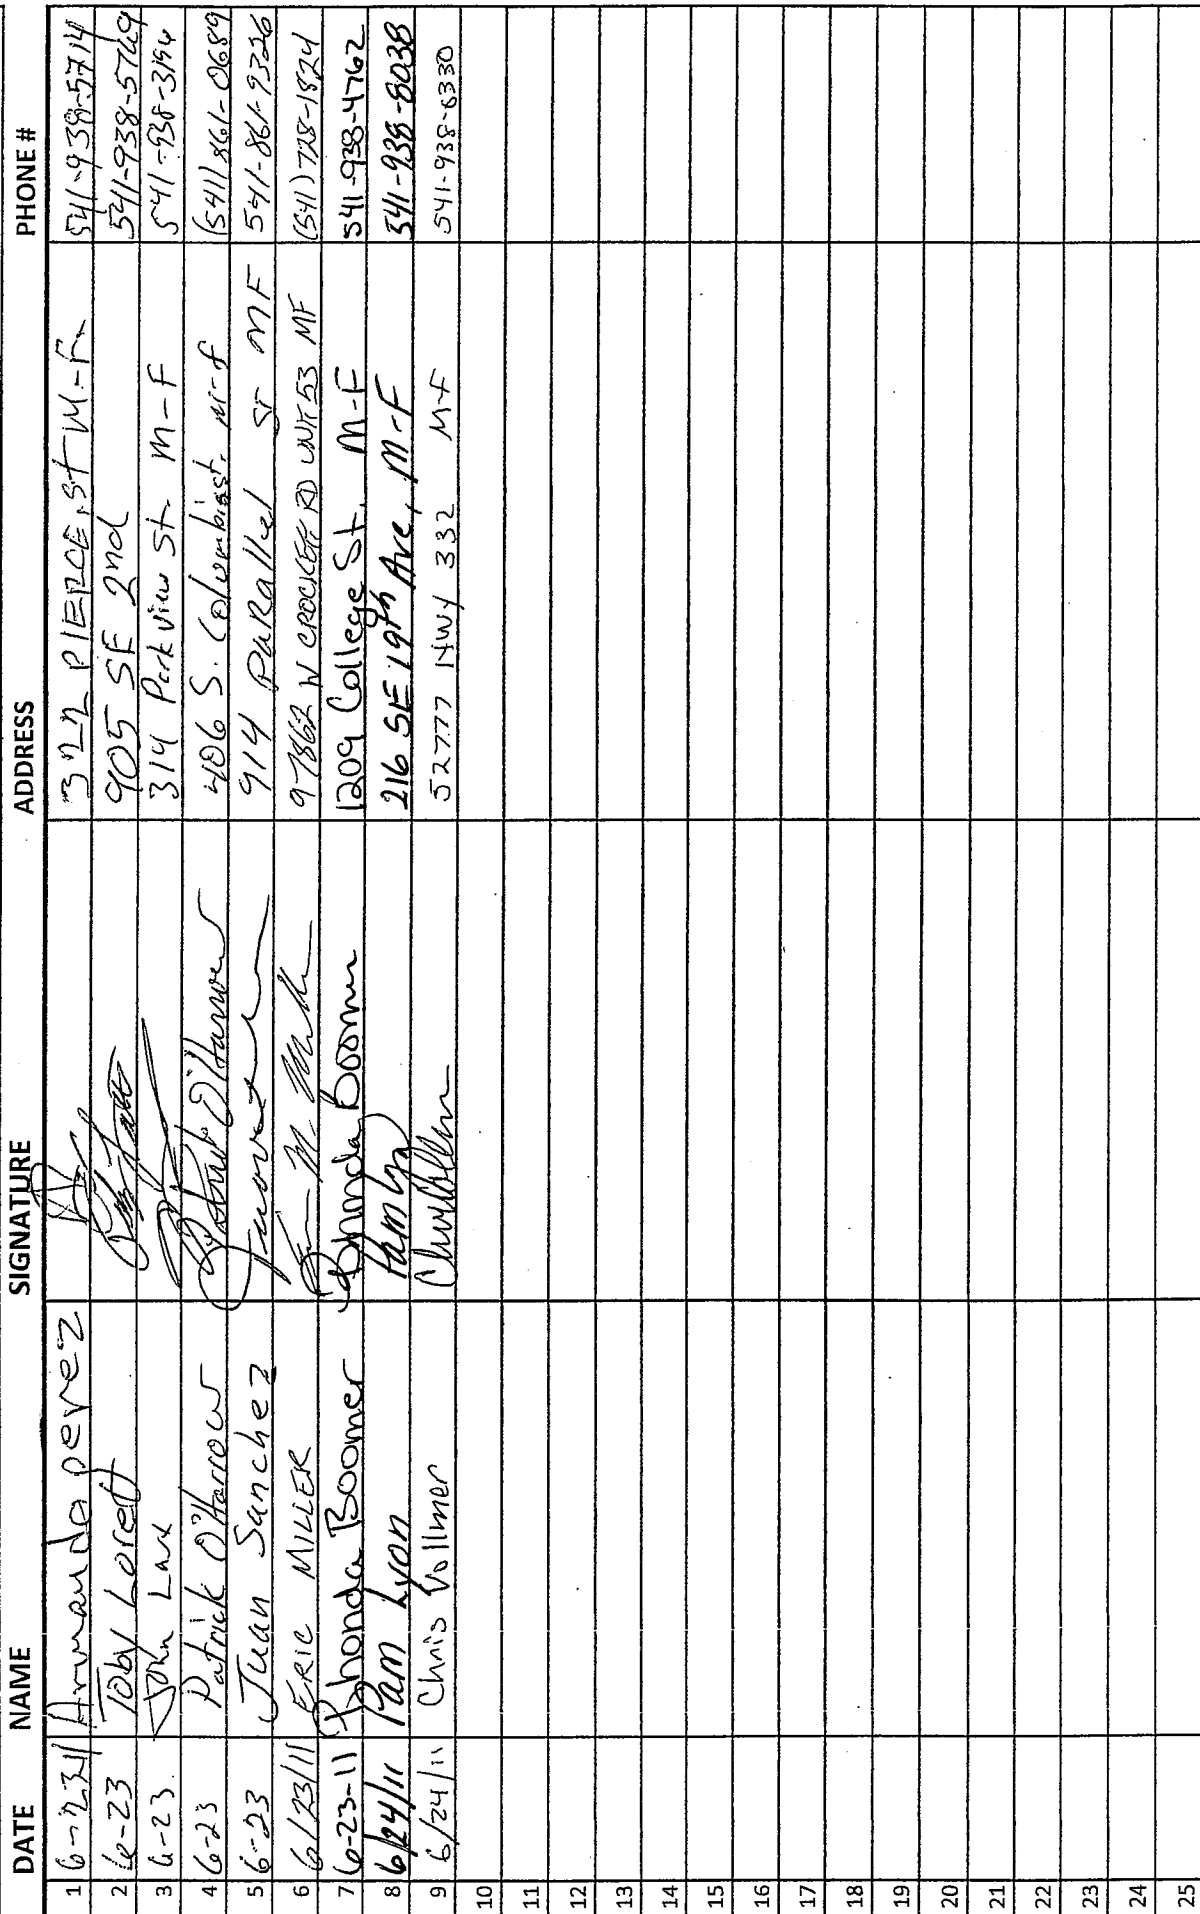 DATE NAME SIGNATURE ADDRESS PHONE #
1 6-23-11 Armando perez 322 PIERCE, ST M-F. 541-938-5714
2 6-23 Toby 905 SE 2nd 541-938-5769
3 6-23 John 314 Parkview St. M-F 541-938-3196
4 6-23 Patrick O'Harrow Patrick O'Harrow 406 S. Columbia st. M-f (541) 861-0689
5 6-23 Juan Sanchez 914 PaRallel ST MF 541-861-9326
6 6/23/11 ERIC MILLER W CROCKETT RD UNIT 53 MF (541) 728-1824
7 6-23-11 Rhonda Boomer Rhonda Boomer 1209 College St. M-F 541-938-4762
8 6/24/11 Pam Lyon Pam Lyon 216 SE 19th Ave, M-F 541-938-8038
9 6/24/11 Chris Vollmer 52777 HWY 332 M-F 541-938-6330
10
11
12
13
14
15
16
17
18
19
20
21
22
23
24
25